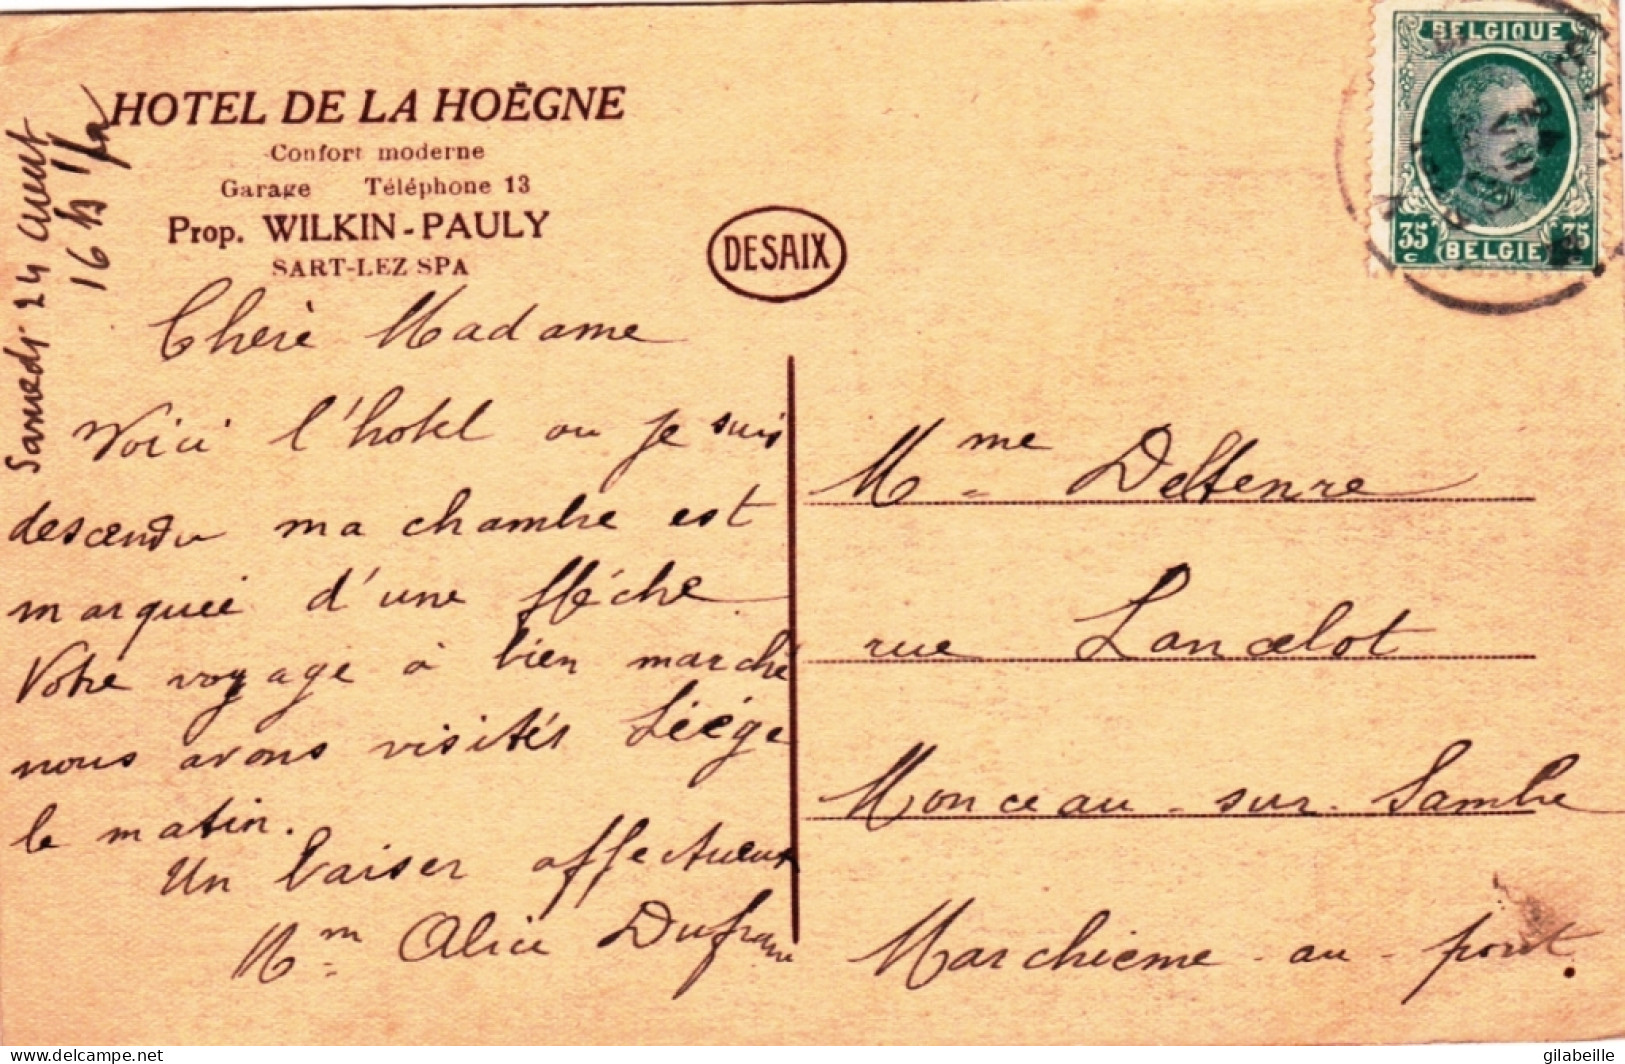 HOTEL DE LA HOËGNE
Confort moderne
Garage Téléphone 13
Prop. WILKIN-PAULY
SART-LEZ SPA
DESAIX
BELGIQUE
35 c 35
BELGIE
Samedi 24
16 h
Chère Madame
Voici l'hotel ou je suis
descendu ma chambre est
marquée d'une fléche
Votre voyage à bien marché
nous avons visités Liége
le matin.
Un baiser affectueux
Mm Alice
Mme Deltenre
rue Lancelot
Monceau-sur-Sambre
Marchienne-au-pont.
delcampe.net
gilabeille